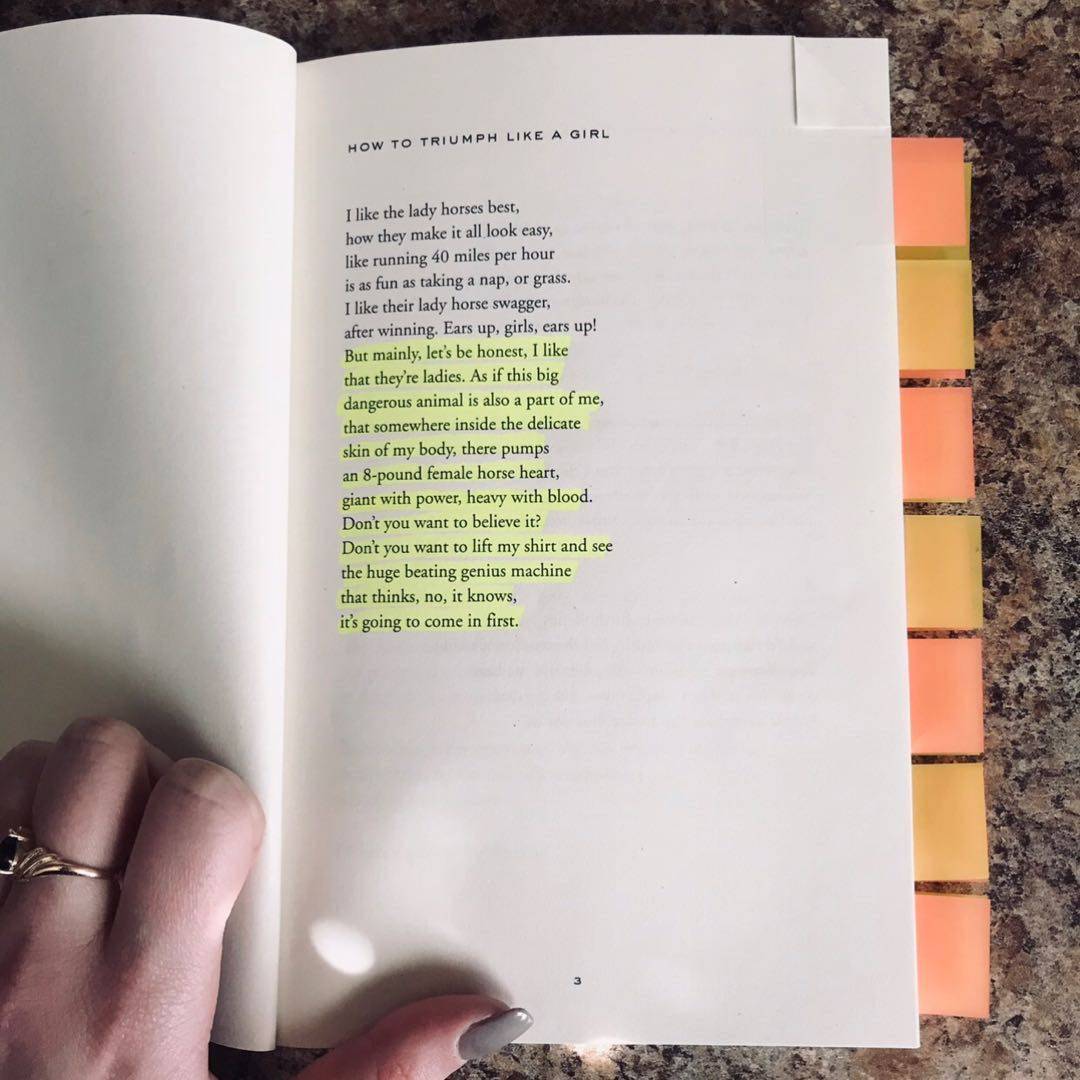 HOW TO TRIUMPH LIKE A GIRL
I like the lady horses best,
how they make it all look easy,
like running 40 miles per hour
is as fun as taking a nap, or grass.
I like their lady horse swagger,
after winning. Ears up, girls, ears up!
But mainly, let's be honest, I like
that they're ladies. As if this big
dangerous animal is also a part of me,
that somewhere inside the delicate
skin of my body, there pumps
an 8-pound female horse heart,
giant with power, heavy with blood.
Don't you want to believe it?
Don't you want to lift my shirt and see
the huge beating genius machine
that thinks, no, it knows,
it's going to come in first.
3